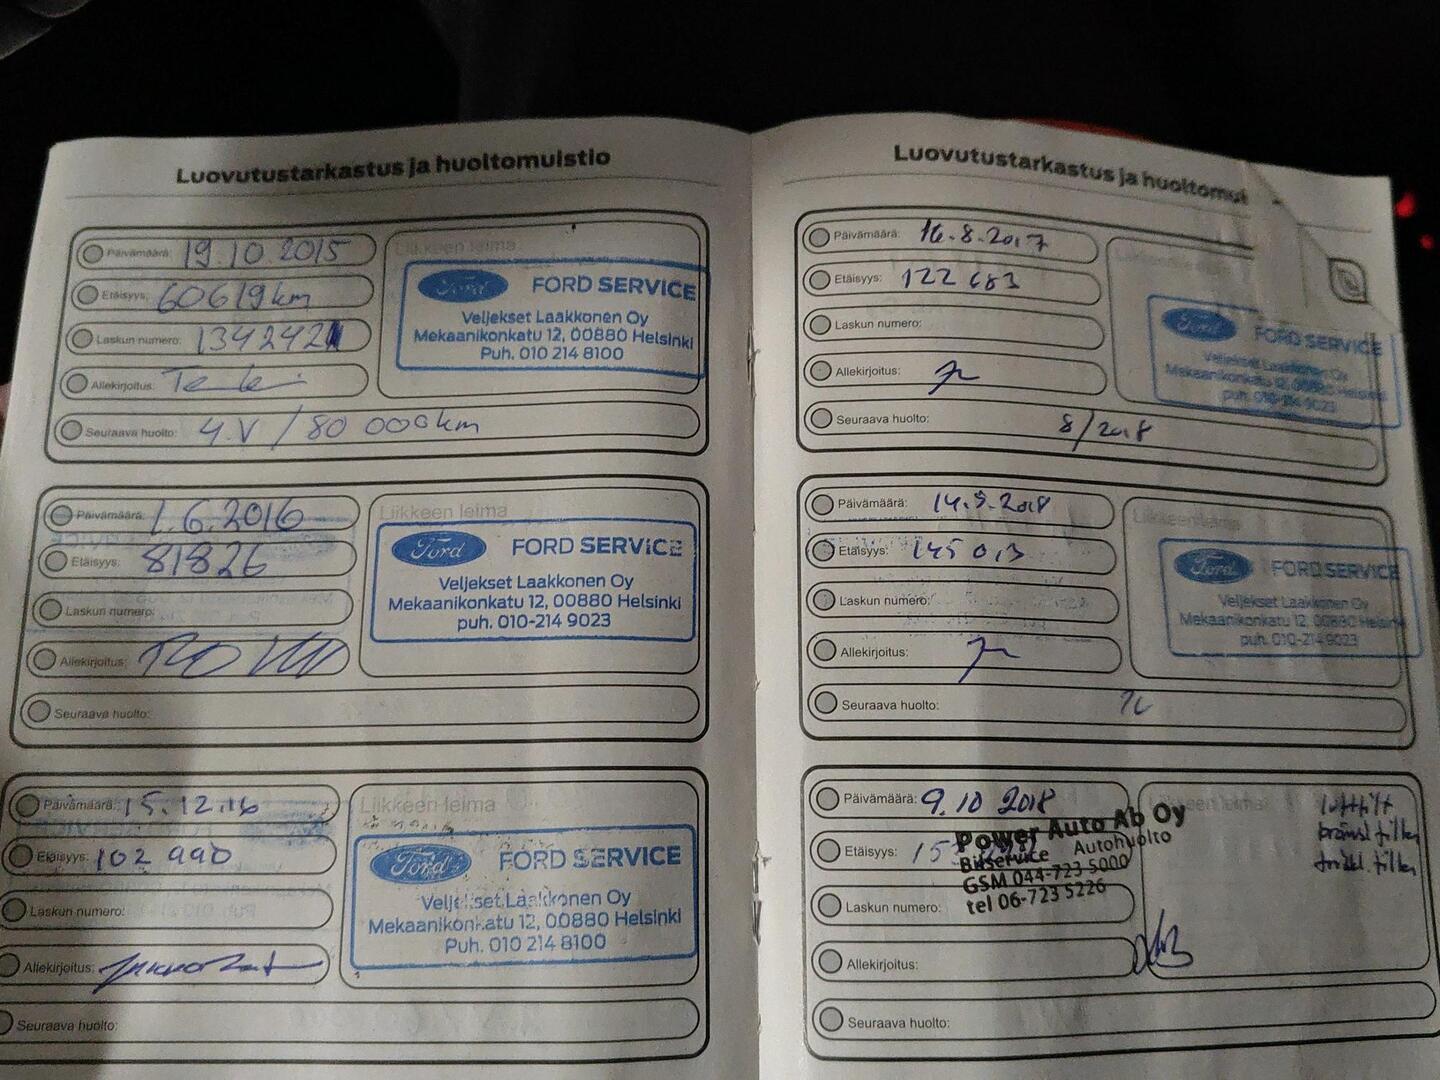 Luovutustarkastus ja huoltomuistio
Päivämäärä: 19.10.2015
Etäisyys: 60619 km
Laskun numero: 1342421
Allekirjoitus:
Seuraava huolto: 4.V / 80 000 km
Liikkeen leima
Ford FORD SERVICE
Veljekset Laakkonen Oy
Mekaanikonkatu 12, 00880 Helsinki
Puh. 010 214 8100
Päivämäärä: 1.6.2016
Etäisyys: 81826
Laskun numero:
Allekirjoitus:
Seuraava huolto:
Liikkeen leima
Ford FORD SERVICE
Veljekset Laakkonen Oy
Mekaanikonkatu 12, 00880 Helsinki
puh. 010-214 9023
Päivämäärä: 15.12.16
Etäisyys: 102 990
Laskun numero:
Allekirjoitus:
Seuraava huolto:
Liikkeen leima
Ford FORD SERVICE
Veljekset Laakkonen Oy
Mekaanikonkatu 12, 00880 Helsinki
Puh. 010 214 8100
Luovutustarkastus ja huoltomui
Päivämäärä: 16.8.2017
Etäisyys: 122 683
Laskun numero:
Allekirjoitus:
Seuraava huolto: 8/2018
Liikkeen leima
Ford FORD SERVICE
Veljekset Laakkonen Oy
Mekaanikonkatu 12, 00880 Helsinki
puh. 010-214 9023
Päivämäärä: 14.9.2018
Etäisyys: 145 013
Laskun numero:
Allekirjoitus:
Seuraava huolto:
Liikkeen leima
Ford FORD SERVICE
Veljekset Laakkonen Oy
Mekaanikonkatu 12, 00880 Helsinki
puh. 010-214 9023
Päivämäärä: 9.10 2018
Etäisyys:
Laskun numero:
Allekirjoitus:
Seuraava huolto:
Power Auto Ab Oy
Bilservice Autohuolto
GSM 044-723 5000
tel 06-723 5226
leima
luftfilt
bränsl.filter